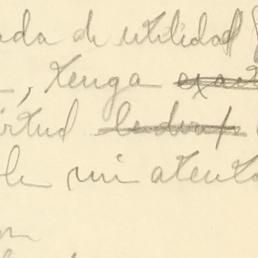 ada de utilidad
, tenga
irtud
le mi atento